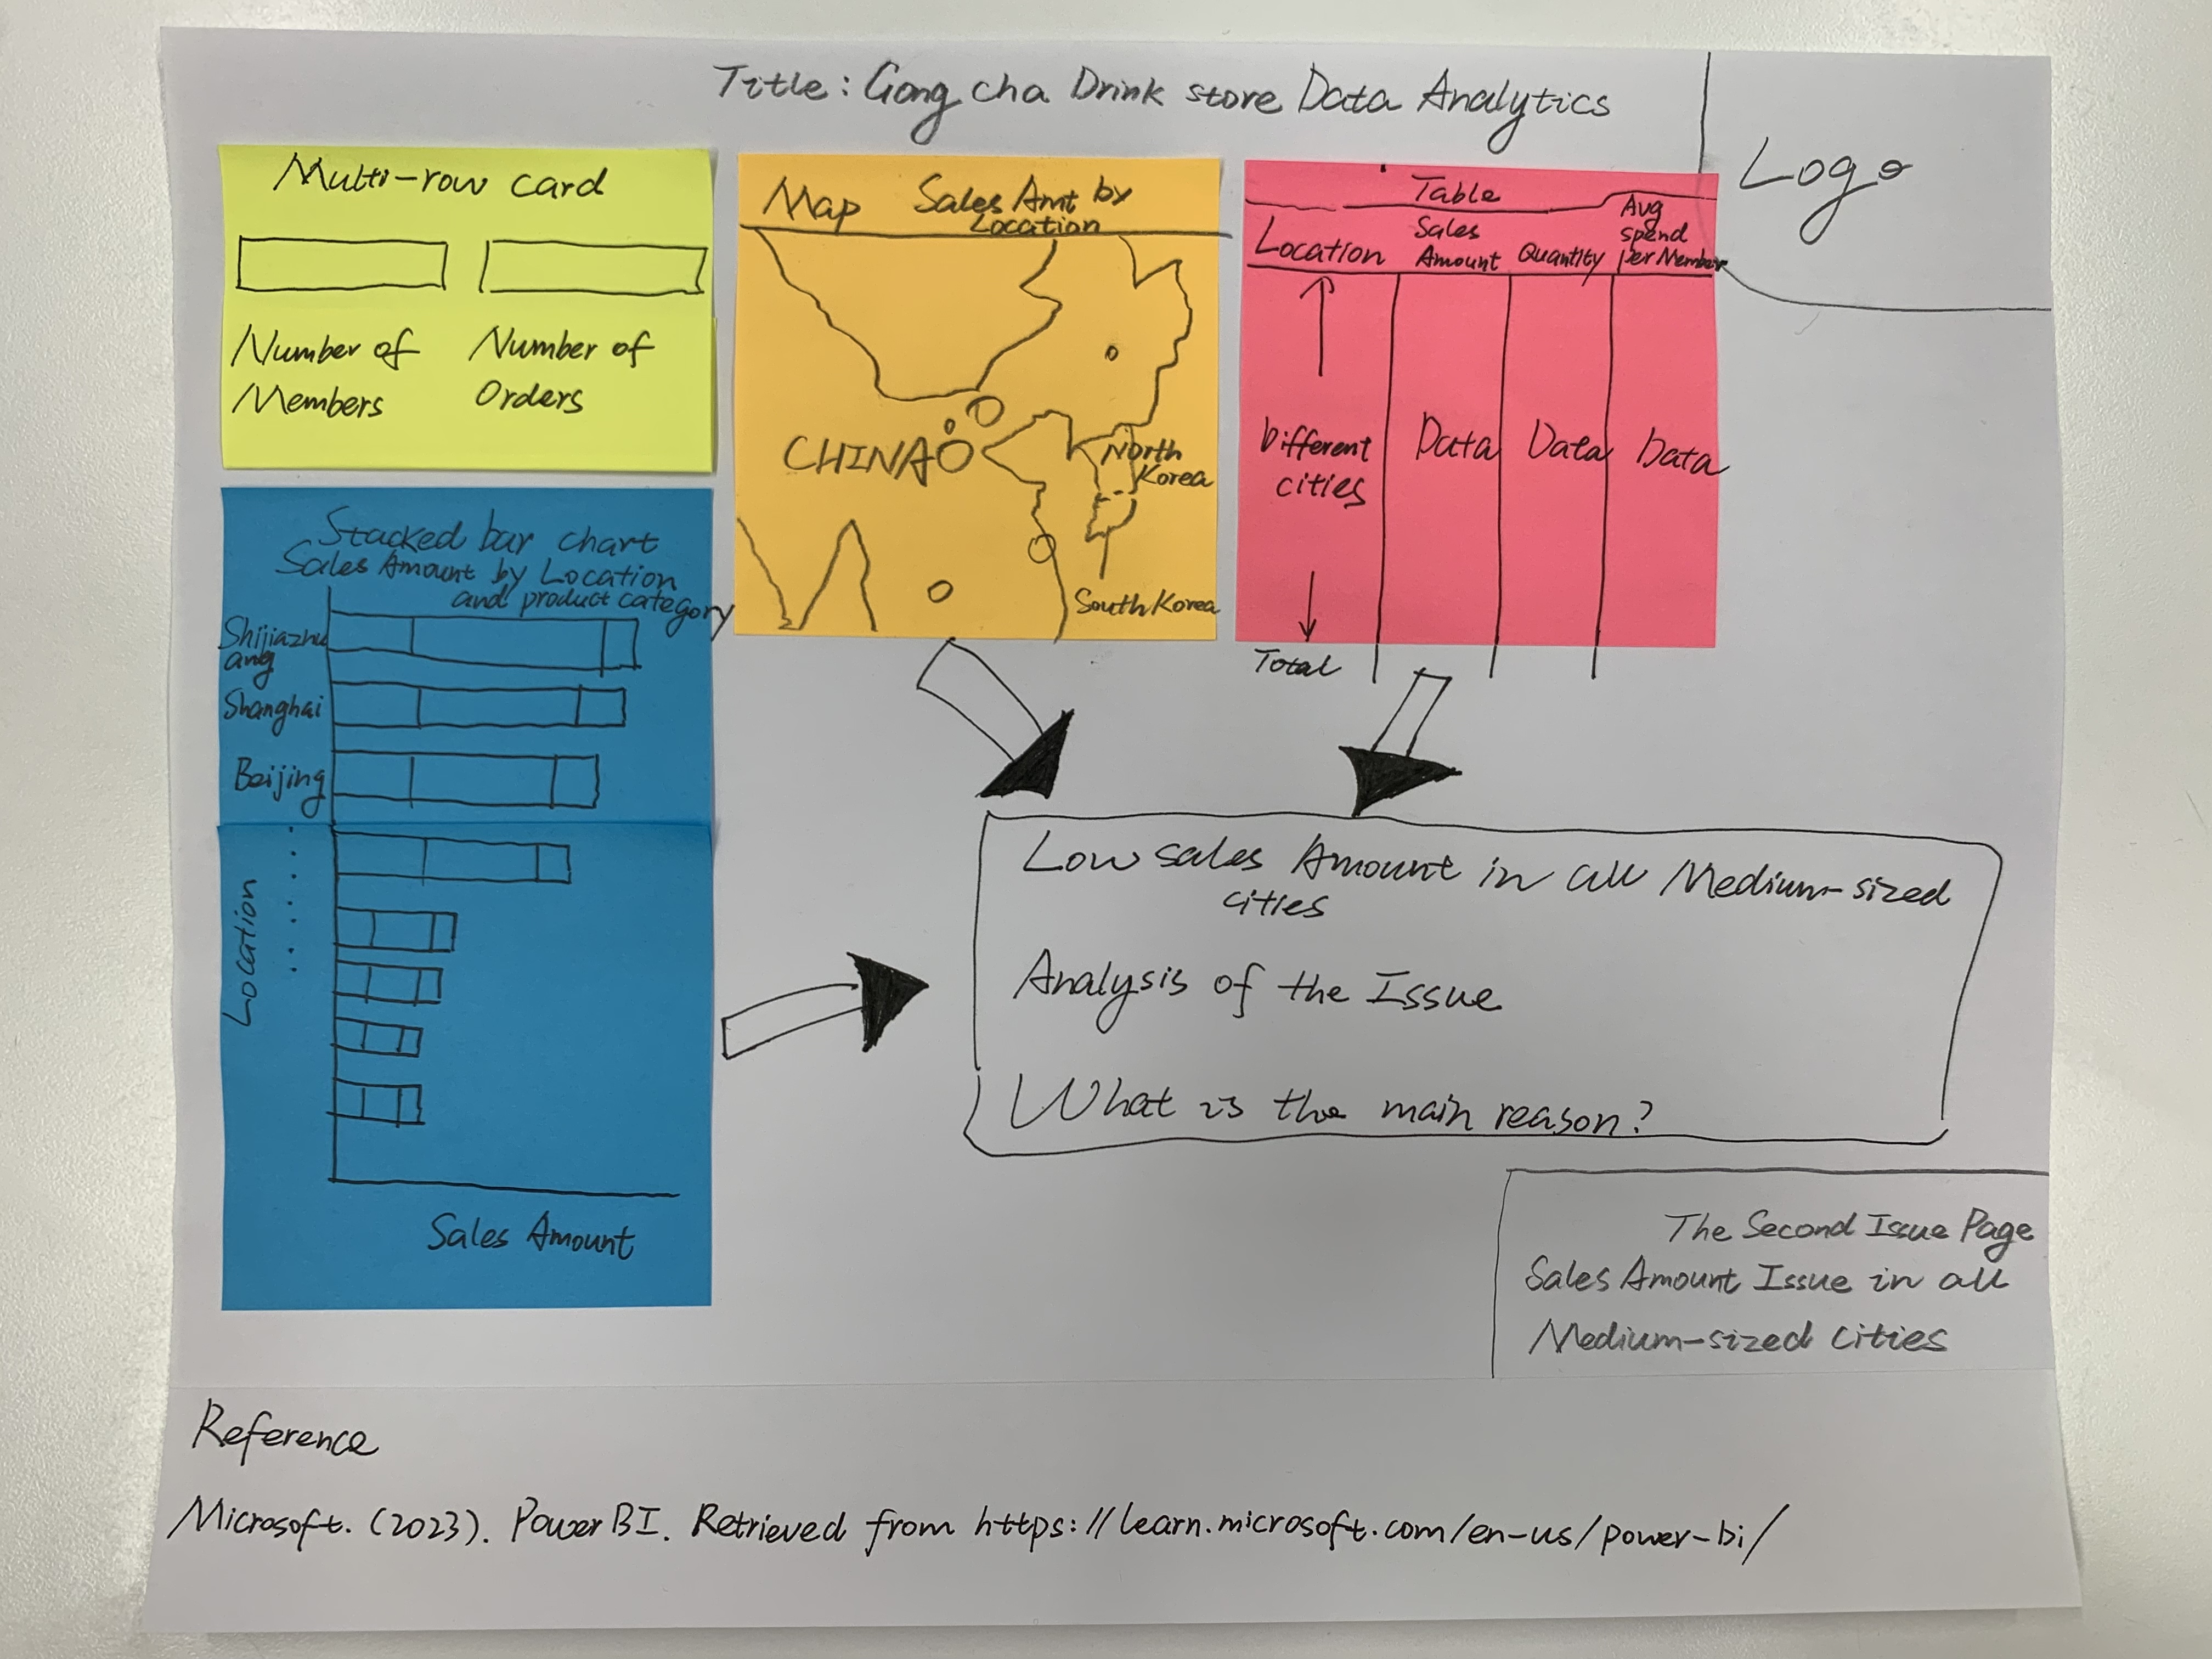 Title: Gong cha Drink store Data Analytics
Logo
Multi-row card
Number of
Members
Number of
Orders
Map Sales Amt by
Location
CHINA
North
Korea
South Korea
Table
Location
Sales
Amount
Quantity
Avg
spend
per Member
Different
cities
Data
Data
Data
Total
Stacked bar chart
Sales Amount by Location
and product category
Shijiazhu
ang
Shanghai
Beijing
Location
Sales Amount
Low sales Amount in all Medium-sized
cities
Analysis of the Issue
What is the main reason?
The Second Issue Page
Sales Amount Issue in all
Medium-sized cities
Reference
Microsoft. (2023). Power BI. Retrieved from https://learn.microsoft.com/en-us/power-bi/